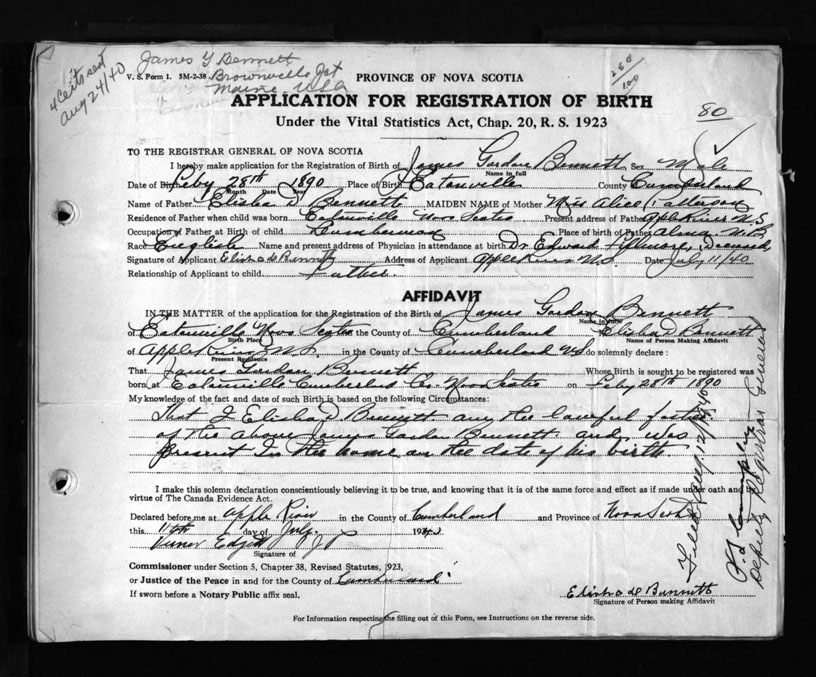 4 Certs sent
Aug 24/40
James G Bennett
Brownville Jct
Maine. USA
V. S. Form 1. 5M-2-38
PROVINCE OF NOVA SCOTIA
APPLICATION FOR REGISTRATION OF BIRTH
80
Under the Vital Statistics Act, Chap. 20, R. S. 1923
TO THE REGISTRAR GENERAL OF NOVA SCOTIA
I hereby make application for the Registration of Birth of James Gordon Bennett Sex Male
Name in full
Date of Birth Feby 28th 1890 Place of Birth Eatonville County Cumberland
Month Date Year
Name of Father Elisha D Bennett MAIDEN NAME of Mother Miss Alice Patterson
Residence of Father when child was born Eatonville Nova Scotia Present address of Father Apple River N.S
Occupation of Father at Birth of child Lumberman Place of birth of Father Alma. N.B
Race English Name and present address of Physician in attendance at birth Dr Edward Fillmore, Deceased
Signature of Applicant Elisha de Bennett Address of Applicant Apple River N.S. Date July 11/40
Relationship of Applicant to child Father.
AFFIDAVIT
IN THE MATTER of the application for the Registration of the Birth of James Gordon Bennett
Name in full
of Eatonville Nova Scotia in the County of Cumberland Elisha D Bennett
Birth Place Name of Person Making Affidavit
of Apple River N.S. in the County of Cumberland N.S. do solemnly declare:
Present Residence
That James Gordon Bennett Whose Birth is sought to be registered was
born at Eatonville Cumberland Co. Nova Scotia on Feby 28th 1890
My knowledge of the fact and date of such Birth is based on the following Circumstances:
That I Elisha D. Bennett am the lawful father
of the above James Gordon Bennett and was
present in the home on the date of his birth
I make this solemn declaration conscientiously believing it to be true, and knowing that it is of the same force and effect as if made under oath and by
virtue of The Canada Evidence Act.
Declared before me at Apple River in the County of Cumberland and Province of Nova Scotia
this 11th day of July. 1940
Edgett J P
Signature of
Commissioner under Section 5, Chapter 38, Revised Statutes, 1923,
or Justice of the Peace in and for the County of Cumberland
If sworn before a Notary Public affix seal.
Elisha de Bennett
Signature of Person making Affidavit
For Information respecting the filling out of this Form, see Instructions on the reverse side.
Filed Aug. 12/1940
Deputy Registrar General